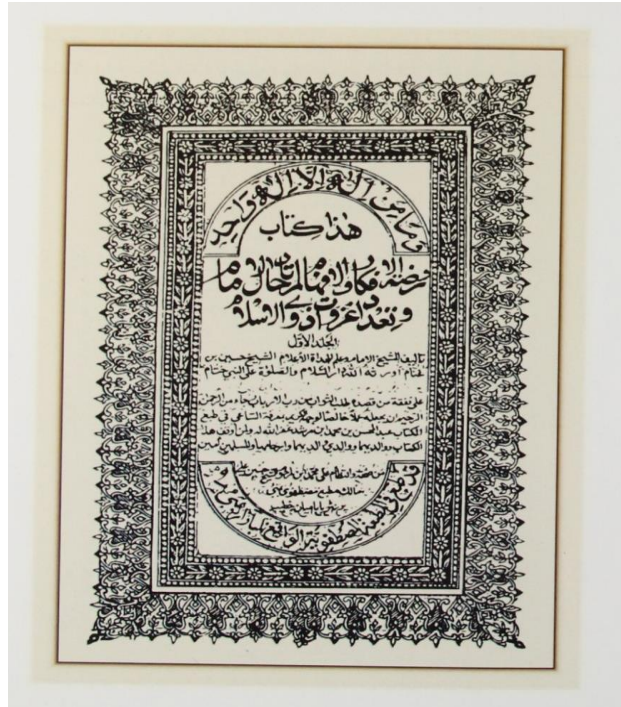 وما من إله إلا إله واحد
هذا كتاب
روضة الافكار والافهام لمرتاد حال الامام
وتعداد غزوات ذوي الاسلام
الجلد الاول
تأليف الشيخ الامام وعلم الهداة الأعلام الشيخ حسين بن
غنام أورثه الله دار السلام والصلوة على النبي ختام
على نفقة من قصده طلب الثواب من رب الارباب من الرحمن
الرحيم ان يجعله عملا خالصا لوجهه الكريم بمعرفة الساعي في طبع
الكتاب عبد المحسن بن محمد بن مرشد غفر الله له ولمن أوقف هذا
الكتاب ووالديهما ووالدي والديهما والمسلمين آمين
مالك مطبع مصطفوي
قد طبع في المطبعة المصطفوية الواقع